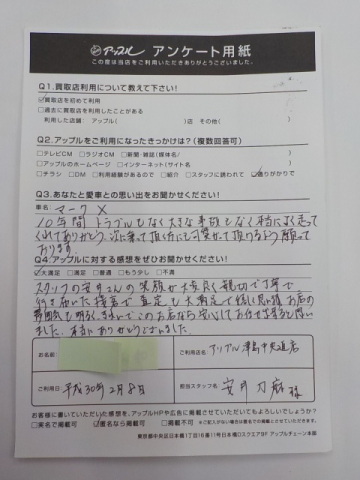 アップル アンケート用紙
この度は当店をご利用いただきありがとうございました。
Q1.買取店利用について教えて下さい!
☑買取店を初めて利用
□過去に買取店を利用したことがある
利用した店舗: アップル( )店 その他( )
Q2.アップルをご利用になったきっかけは?(複数回答可)
□テレビCM □ラジオCM □新聞・雑誌(媒体名/ )
□アップルのホームページ □インターネット(サイト名 )
□チラシ □DM □利用経験があるので □紹介 □スタッフに誘われて ☑通りがかりで
Q3.あなたと愛車との思い出をお聞かせください!
車名: マークX
10年間トラブルもなく大きな事故もなく本当によく走って
くれてありがとう。次に乗って頂く方にも可愛がって頂けるよう願って
おります。
Q4.アップルに対する感想をぜひお聞かせください!
☑大満足 □満足 □普通 □もう少し □不満
スタッフの安井さんの笑顔が大変良く親切で丁寧で
行き届いた接客で査定も大満足で嬉しく思い お店の
雰囲気も明るく
このお店なら安心してお任せ出来ると思い
ました。本当にありがとうございました。
お名前
ご利用店名: アップル津島中央通店
ご利用日: 平成30年2月8日
担当スタッフ名: 安井 刀麻 様
お客様に書いていただいた感想を、アップルHPや広告に掲載させていただいてもよろしいでしょうか?
□実名で掲載可 ☑匿名なら掲載可 □掲載不可 ※ご記入がない場合は匿名での掲載とさせていただきます。
東京都中央区日本橋1丁目16番11号日本橋Dスクエア9F アップルチェーン本部